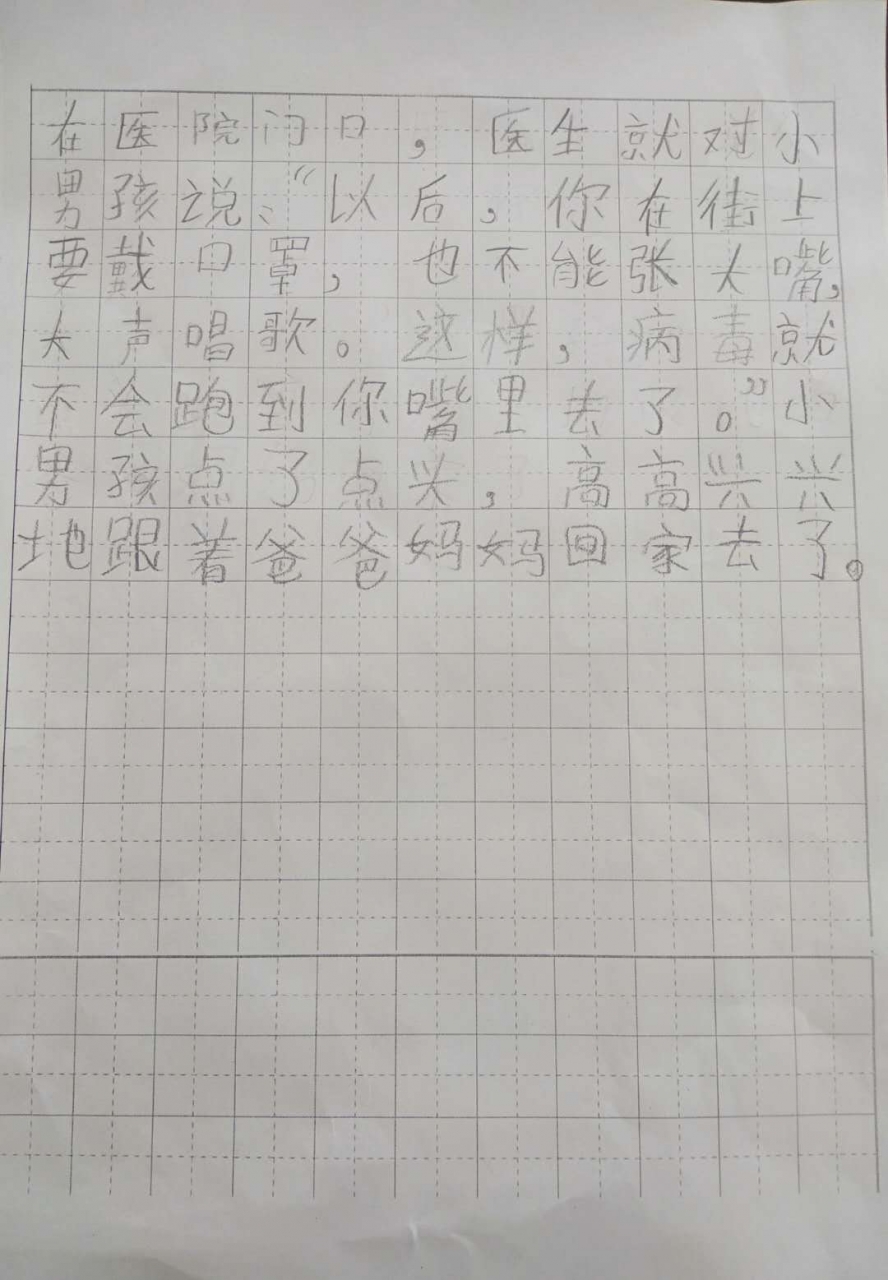 在医院门口，医生就对小
男孩说：“以后，你在街上
要戴口罩，也不能张大嘴，
大声唱歌。这样，病毒就
不会跑到你嘴里去了。”小
男孩点了点头，高高兴兴
地跟着爸爸妈妈回家去了。